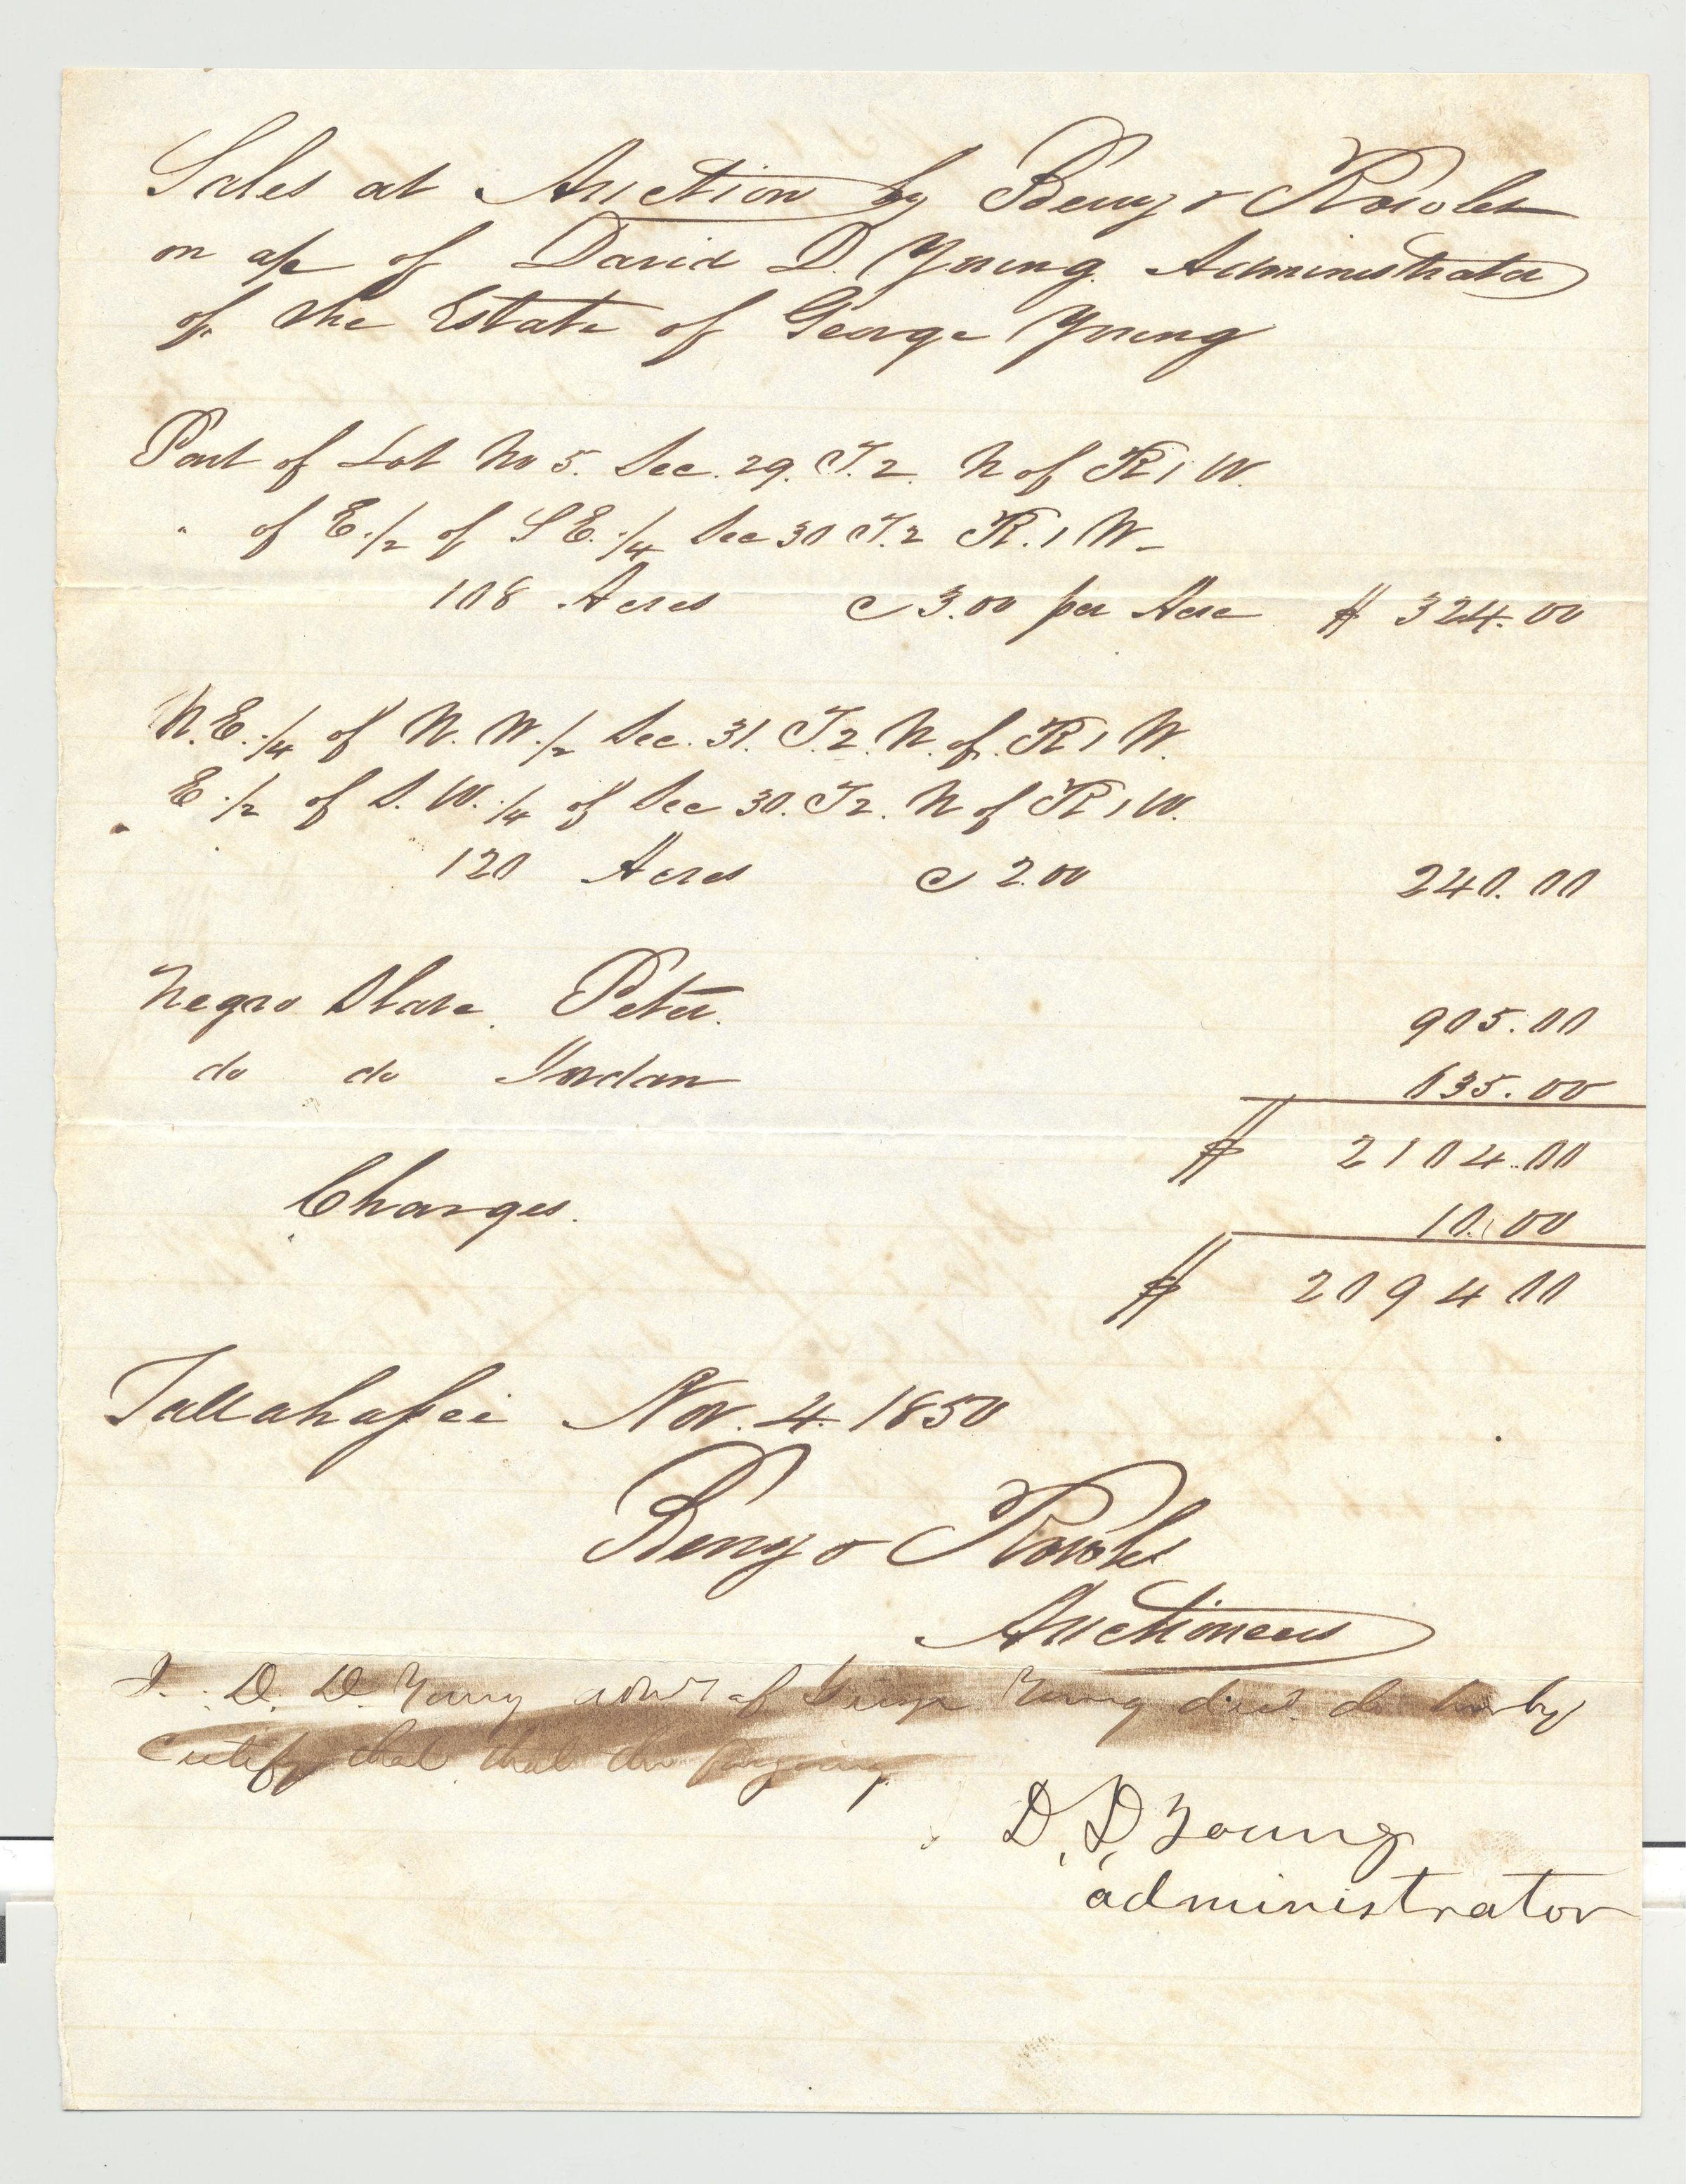 Sales at Auction by Berry & Rowles
on a/c of David D. Young Administrator
of the Estate of George Young
Part of Lot No 5. Sec. 29. T. 2. N of R 1 W.
" of E. 1/2 of S E. 1/4 Sec 30 T. 2 R. 1 W_
108 Acres @ 3.00 per Acre $ 324.00
N. E. 1/4 of N. W. 1/2 Sec. 31. T. 2. N. of. R 1 W.
E. 1/2 of S. W. 1/4 of Sec 30. T 2. N of R 1 W.
120 Acres @ 2.00 240.00
Negro Slave. Peter. 905.00
do do Jordan 635.00
$ 2104.00
Charges. 10.00
$ 2094 00
Tallahassee Nov. 4. 1850
Berry & Rowles
Auctioneers
I. D. D. Young admr of George Young decd. do herby
Certify that that the forgoing
D. D. Young
administrator